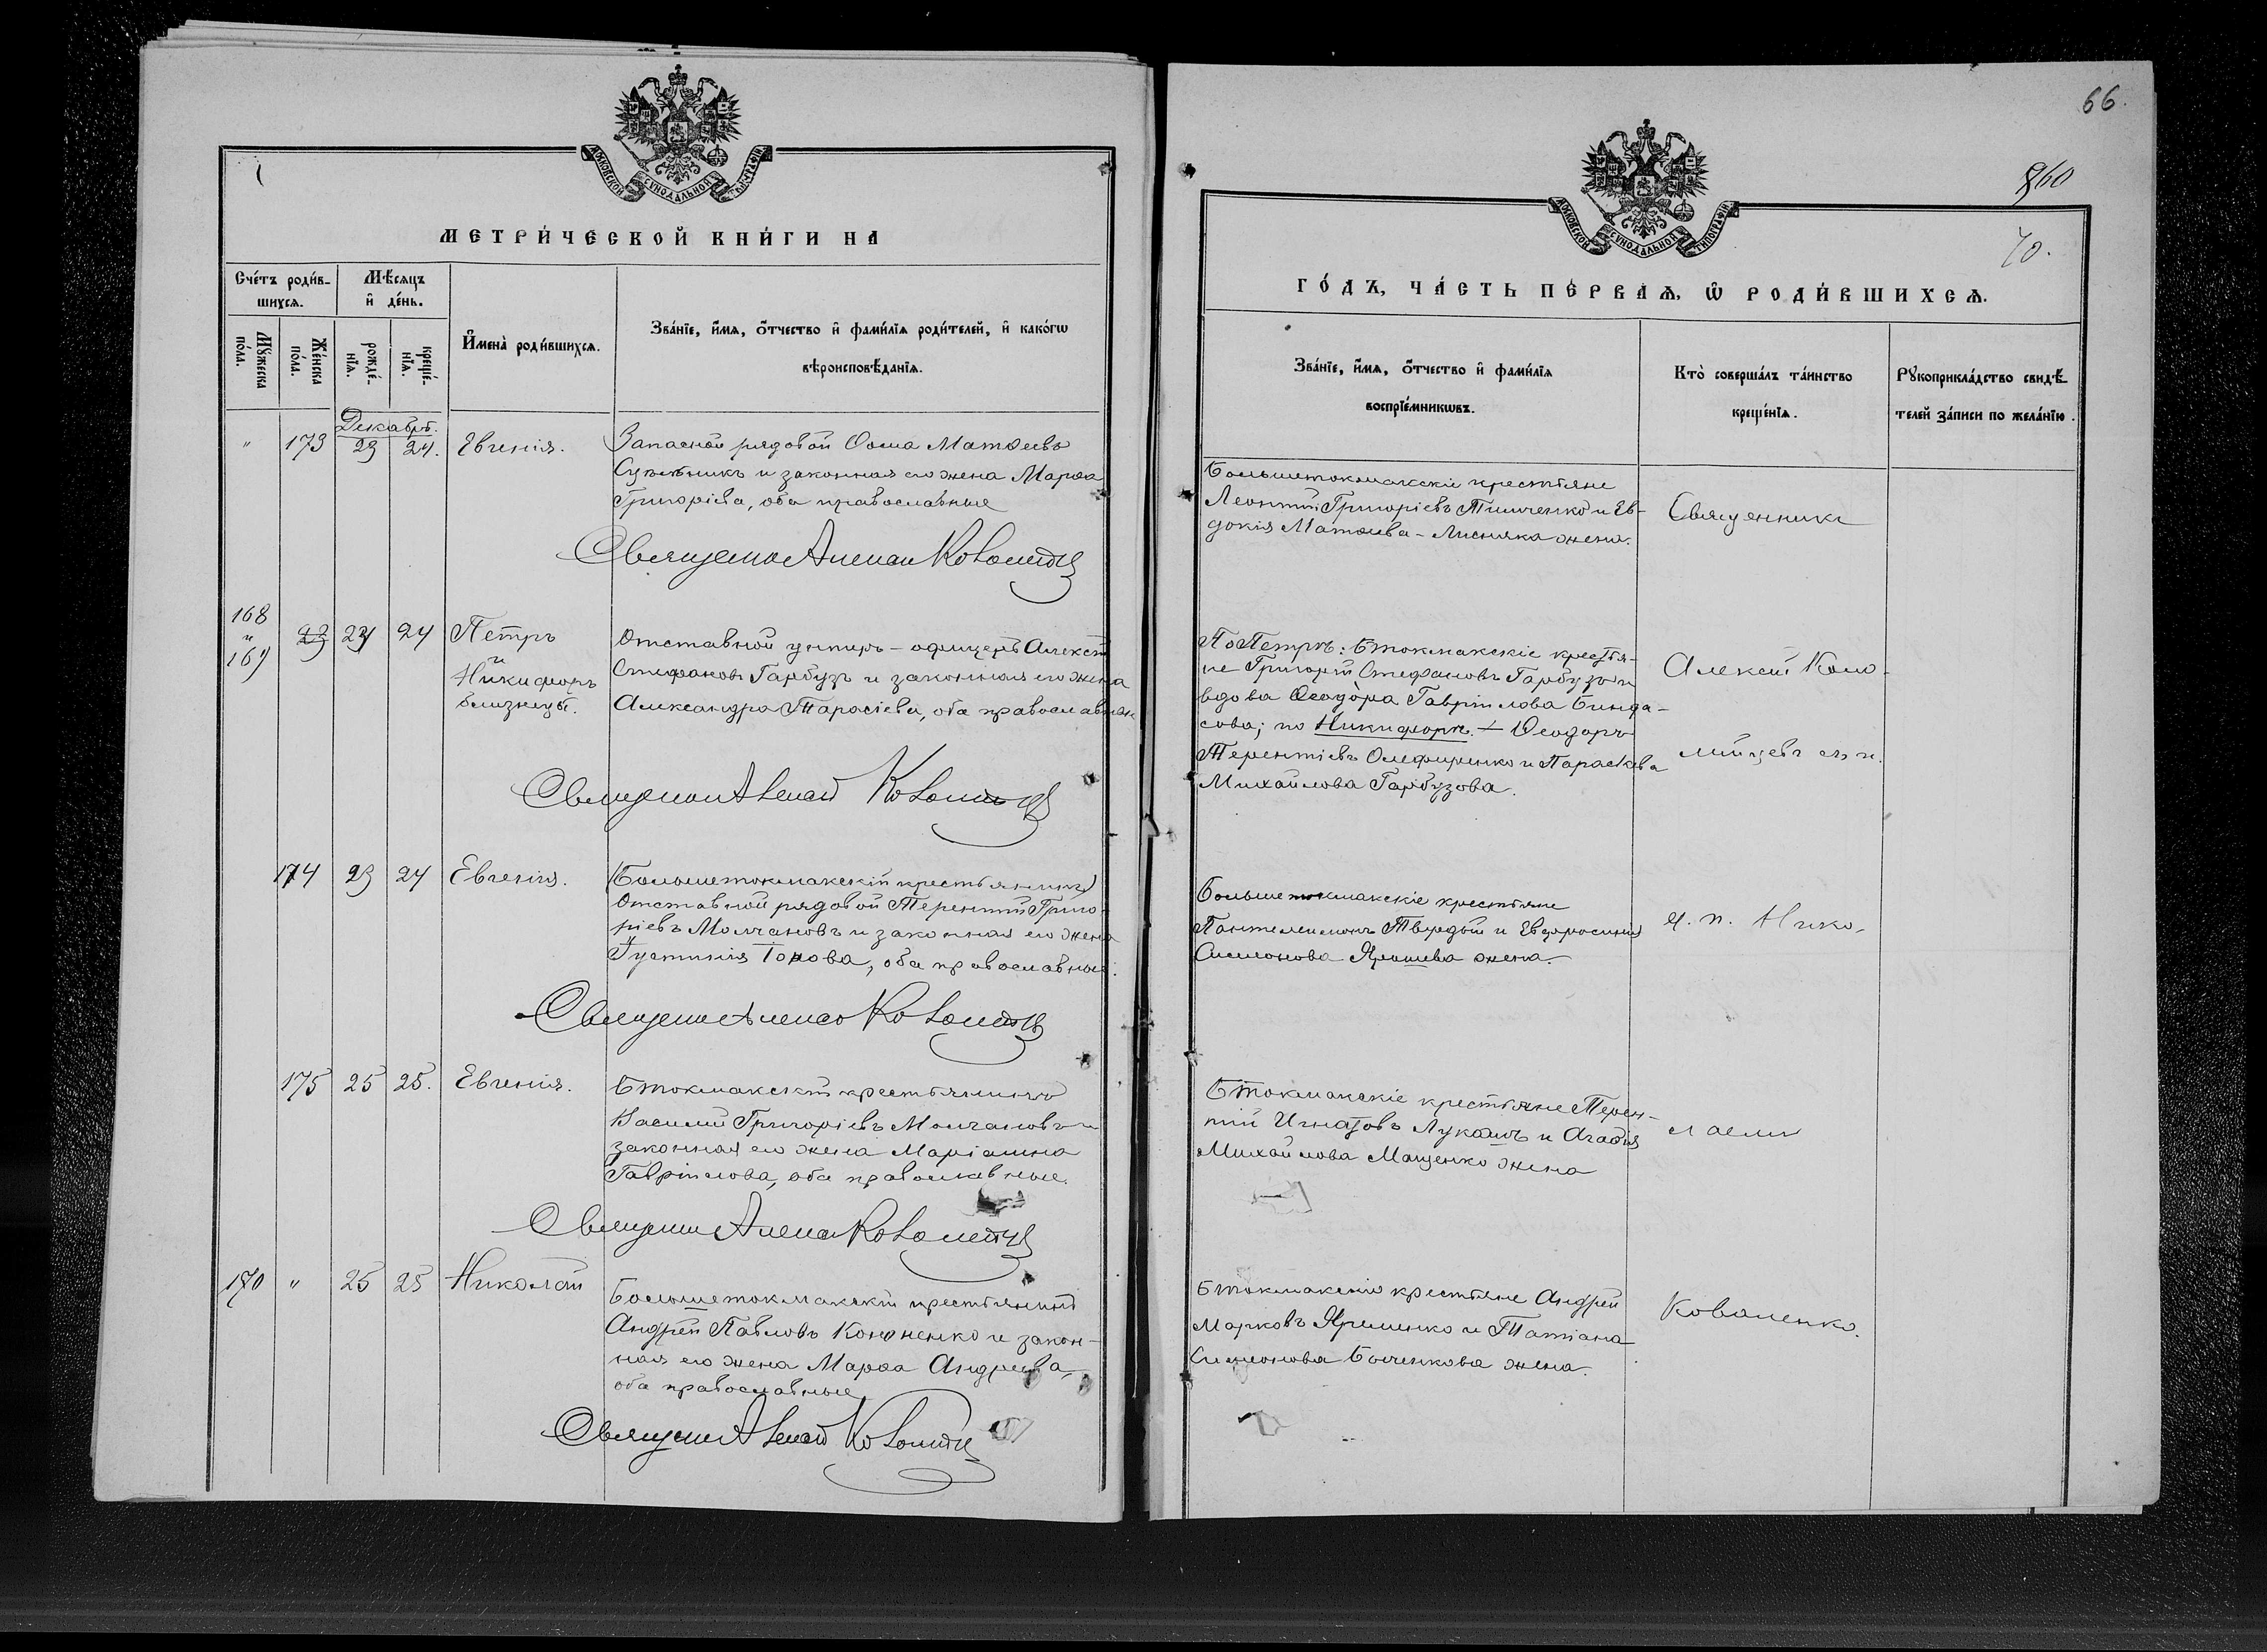 66.
МОСКОВСКОЙ СѴНОДАЛЬНОЙ ТИПОГРАФІИ
МЕТРИ́ЧЕСКОЙ КНИ́ГИ НА
Сче́тъ роди́в-
шихсѧ.
Мѣ́сѧцъ
и҆ де́нь.
Мꙋ́жеска по́ла.
Же́нска по́ла.
рожде́-
нїѧ.
креще́-
нїѧ.
И҆мена̀ роди́вшихсѧ.
Зва́нїе, и҆́мѧ, ѻ҆́тчество и҆ фами́лїѧ роди́телей, и҆ како́гѡ
вѣроисповѣ́данїѧ.
Декабрь.
" 173 23 24. Евгенія.
Запасной рядовой Ѳома Матѳеевъ
и законная его жена Марѳа
Григоріева, оба православные
Священникъ
168
и
169
23 24 24 Петръ
и
Никифоръ
близнецы.
Отставной унтеръ-офицеръ Алексѣй
Стефановъ Гарбузъ и законная его жена
Александра Тарасіева, оба православные
Священникъ
174 23 24 Евгенія.
(Большетокмакскій крестьянинъ)
Отставной рядовой Терентій Григо-
ріевъ Молчановъ и законная его жена
Іустинія , оба православные.
Священникъ
175 25 25. Евгенія.
Б Токмакскій крестьянинъ
Василій Григоріевъ Молчановъ и
законная его жена Маріамна
Гавріилова, оба православные.
Священникъ
170 " 25 25 Николай
Большетокмакскій крестьянинъ
Андрей Павловъ Кононенко и закон-
ная его жена Марѳа Андреева,
оба православные
Священникъ
960
70.
МОСКОВСКОЙ СѴНОДАЛЬНОЙ ТИПОГРАФІИ
ГО́ДЪ, ЧА́СТЬ ПЕ́РВАѦ, Ѡ҆ РОДИ́ВШИХСѦ.
Зва́нїе, и҆́мѧ, ѻ҆́тчество и҆ фами́лїѧ
воспрїе́мникѡвъ.
Кто̀ соверша́лъ та́инство
креще́нїѧ.
Рꙋкоприкла́дство свидѣ́-
телей за́писи по жела́нїю.
Большетокмакскіе крестьяне
Леонтій Григоріевъ Тимченко и Ев-
докія Матѳеева - Лисняка жена.
Священникъ
По Петрѣ: Б Токмакскіе крестья-
не Григорій Стефановъ Гарбузъ и
вдова Ѳеодора Гавріилова Бинда-
сова; по Никифорѣ. - Ѳеодоръ
Терентіевъ Олефиренко и Параскева
Михайлова Гарбузова.
Алексій Коло-
мійцевъ
Большетокмакскіе крестьяне
Пантелеимонъ Твердый и Евфросинія
Симеонова жена.
Нико-
Б Токмакскіе крестьяне Терен-
тій Игнатовъ Лукашъ и Агафія
Михайлова Мащенко жена
лаемъ
Б Токмакскіе крестьяне Андрей
Марковъ Яременко и Татіана
Симеонова жена.
Коваленко.